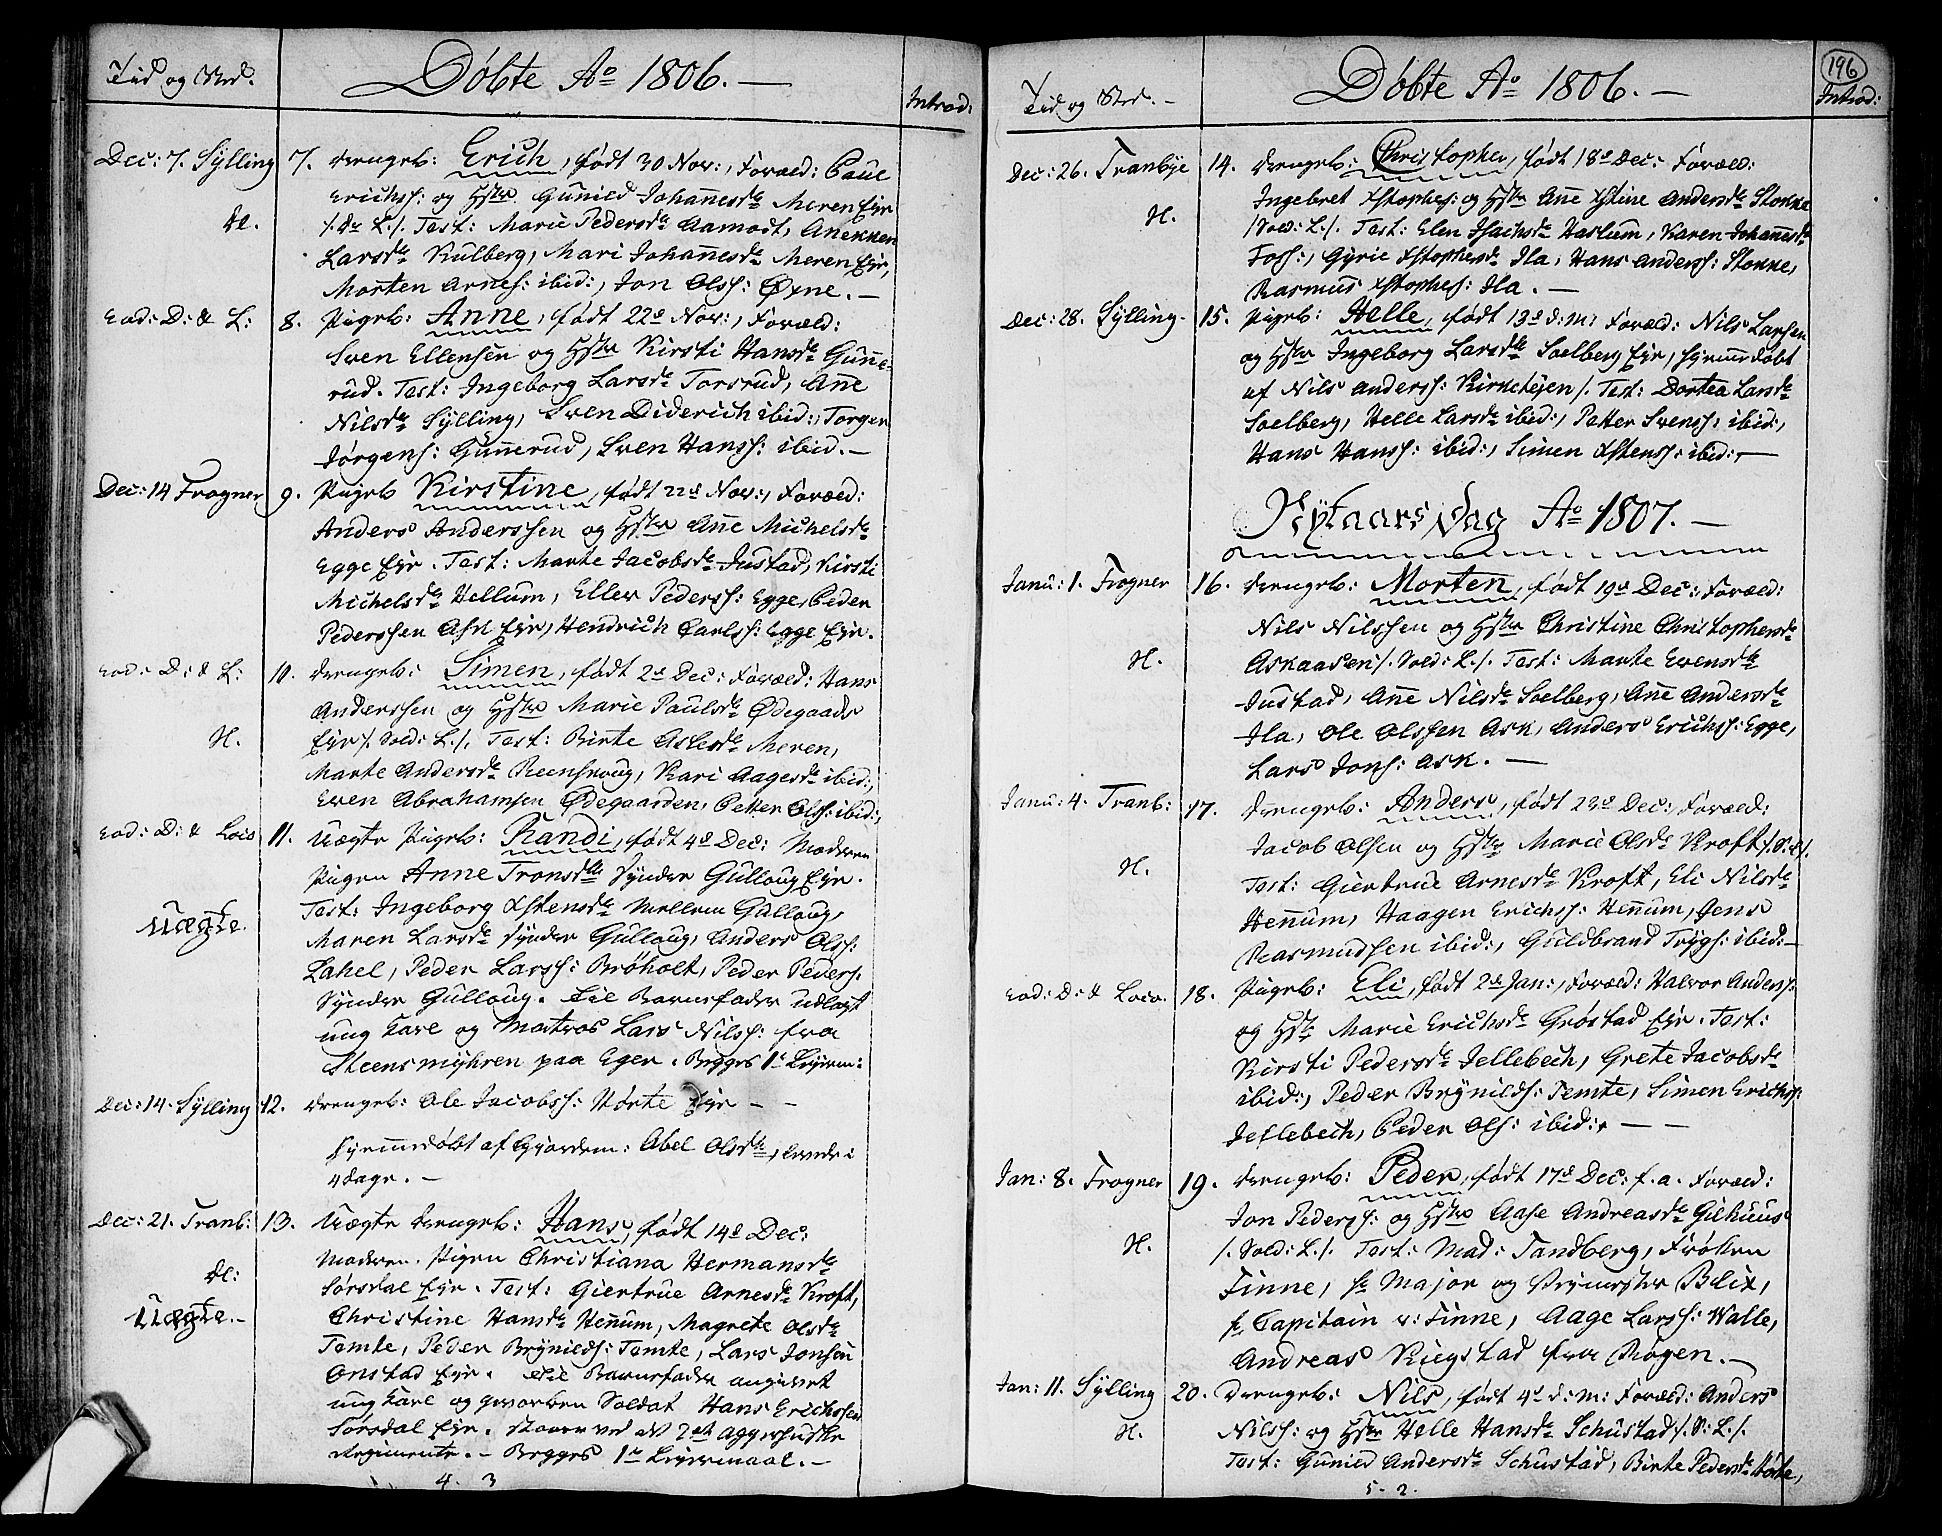 Tid og Sted.
Døbte Ao 1806. —
Introd:
Dec: 7. Sylling
7. Drengeb: Erich, født 30 Nov:, Foræld: Paul
Erichs: og Hstr Gunild Johanesdr Meren Eje
/: S: L./. Test: Marie Pedersdr Aamodt, Anekken
Larsdr Kulberg, Mari Johanesdr Meren Eje,
Morten Arnes: ibid:, Jon Olss: Øxne. —
Eod: D: & L:
8. Pigeb: Anne, født 22d Nov:, Foræld:
Sven Ellensen og Hstr Kirsti Hansdr Gune-
rud. Test: Ingeborg Larsdr Torsrud, Ane
Nilsdr Sylling, Sven Diderich ibid:, Torger
Jørgens: Gunerud, Sven Hanss: ibid. —
Dec: 14 Frogner
9. Pigeb Kirstine, født 22d Nov:, Foræld:
Anders Anderssen og Hstr Ane Michelsdr
Egge Eje. Test: Marte Jacobsdr Justad, Kirsti
Michelsdr Hellum, Eller Peders: Egge, Peder
Pederssen Ask Eje, Hendrich Carls: Egge Eje.
Eod: D: & L:
10. Drengeb: Simen, født 2d Dec: Foræld: Hans
Anderssen og Hstr Marie Paulsdr Ødegaards
H.
Eje /. Sold: L./. Test: Birte Aslesdr Meren,
Marte Andersdr Reenskoug, Kari Aagesdr ibid:,
Even Abrahamsen Ødegaarden, Petter Ols: ibid:,
Eod: D: & Loco
11. Uægte Pigeb: Randi, født 4d Dec: Moderen
Pigen Anne Tronsdr Synder Gulloug Eje.
Test: Ingeborg Xstensdr Mellem Gulloug,
Uægte.
Maren Larsdr Synder Gulloug, Anders Ols:
Lahel, Peder Larss: Brøholt, Peder Peders:
Synder Gulloug. Til Barnefader udlagt
ung Karl og Matros Lars Nils: fra
Steensmyhren paa Eger. Begges 1e Lejerm:
Dec: 14. Sylling
12. Drengeb: Ole Jacobss: Hørte Eje — —
hjemmedøbt af Gjordem: Abel Olsdr, levede i
4 dage. —
Dec: 21. Tranb:
13. Uægte Drengeb: Hans, født 14d Dec:
Moderen Pigen Christiana Hermansdr
Sørsdal Eje. Test: Giertrue Arnesdr Kroft,
Uægte. —
Christine Hansdr Henum, Magrete Olsdr
Temte, Peder Brynilds: Temte, Lars Jonsen
Onstad Eje. Til Barnefader angivet
ung Karl og gevorben Soldat Hans Erichssen
Sørsdal Eje. staaer ved det 2det Aggerhusiske
Regimente. — Begges 1e Lejermaal. —
4. 3
Tid og Sted. —
Døbte Ao 1806. —
196
Introd:
Dec: 26. Tranbye
14. Drengeb: Christopher, født 18d Dec: Foræld:
Ingebret Xstophes: og Hstr Ane Xstine Andersdr Stokke
H.
/Sold: L./. Test: Elen Isachsdr Haslum, Karen Johanesdr
Foss:, Gyrie Xstophersdr Ila, Hans Anderss: Stokke,
Rasmus Xstophes: Ila. —
Dec: 28. Sylling.
15. Pigeb: Helle, født 13d d: M: Foræld: Nils Larsen
og Hstr Ingeborg Larsdr Soelberg Eje, hjemmedøbt
af Nils Anderss: Kirketejen /. Test: Dortea Larsdr
Soelberg, Helle Larsdr ibid:, Petter Svenss: ibid:,
Hans Hanss: ibid:, Simen Xstens: ibid:, —
Nytaars Dag Ao 1807. —
Janu: 1. Frogner
16. Drengeb: Morten, født 19d Dec: Foræld:
Nils Nilssen og Hstr Christine Christophersdr
H.
Askaasen /. Sold: L./. Test: Marte Evensdr
Justad, Ane Nilsdr Soelberg, Ane Andersdr
Ila, Ole Olssen Ask, Anders Erichs: Egge,
Lars Jons: Ask. —
Janu: 4. Tranb:
17. Drengeb: Anders, født 23d Dec:, Foræld:
Jacob Olsen og Hstr Marie Olsdr Kroft /. S: L/.
H.
Test: Giertrue Arnesdr Kroft, Eli Nilsdr
Henum, Haagen Erichss: Henum, Jens
Rasmudsen ibid:, Guldbrand Trygs: ibid: —
Eod: D: & Loco.
18. Pigeb: Eli, født 2d Jan:, Foræld: Halvor Anders:
og Hstr Marie Erichsdr Grøstad Eje. Test:
Kirsti Pedersdr Jellebech, Grete Jacobsdr
ibid:, Peder Brynilds: Temte, Simen Erichs:
Jellebech, Peder Ols: ibid: — —
Jan: 8. Frogner
19. Drengeb: Peder, født 17d Dec: f. a. Foræld:
Jon Peders: og Hstr Aase Andreasdr Gilhuus
H.
/. Sold: L./. Test: Mad: Tandberg, Frøken
Finne, hr Major og Blix,
hr Capitain v: Finne, Aage Larss: Walle,
Andreas Kiegstad fra Røgen. —
Jan: 11. Sylling
20. Drengeb: Nils, født 4d d: M: Foræld: Anders
H.
Nilss: og Hstr Helle Hansdr Schustad /. S: L./.
Test: Gunild Andersdr Schustad, Birte Pedersdr Hørte,
5. 2.